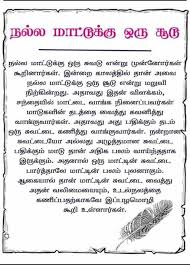 நல்ல மாட்டுக்கு ஒரு சூடு
நல்ல மாட்டுக்கு ஒரு சுவடு என்று முன்னோர்கள்
கூறினார்கள். இன்றை காலத்தில் தான் அவை
நல்ல மாட்டுக்கு ஒரு சூடு என்று மறுவி
நிற்கின்றது. அதாவது இதன் விளக்கம்,
சந்தையில் மாட்டை வாங்க நினைப்பவர்கள்
மாடுகளின் தடத்தை வைத்து கவனித்து
வாங்குவார்கள். அதாவது அது பதிக்கும் தடம்
ஒரு சுவட்டை கணித்து வாங்குவார்கள். நன்றான
சுவட்டையோ அல்லது அழுத்தமான சுவட்டை
பதிக்கும் மாடு தான் அதிக பலம் வாய்ந்ததாக
இருக்கும். அதனால் ஒரு மாட்டின் சுவட்டை
பார்த்தாலே மாட்டின் பலம் புலனாகும்.
ஆகையால் தான் மாட்டின் சுவட்டை வைத்து
அதன் வலிமையையும், உடல்நலத்தை
கணிப்பதற்காகவே இப்பழமொழி
கூறி உள்ளார்கள்.